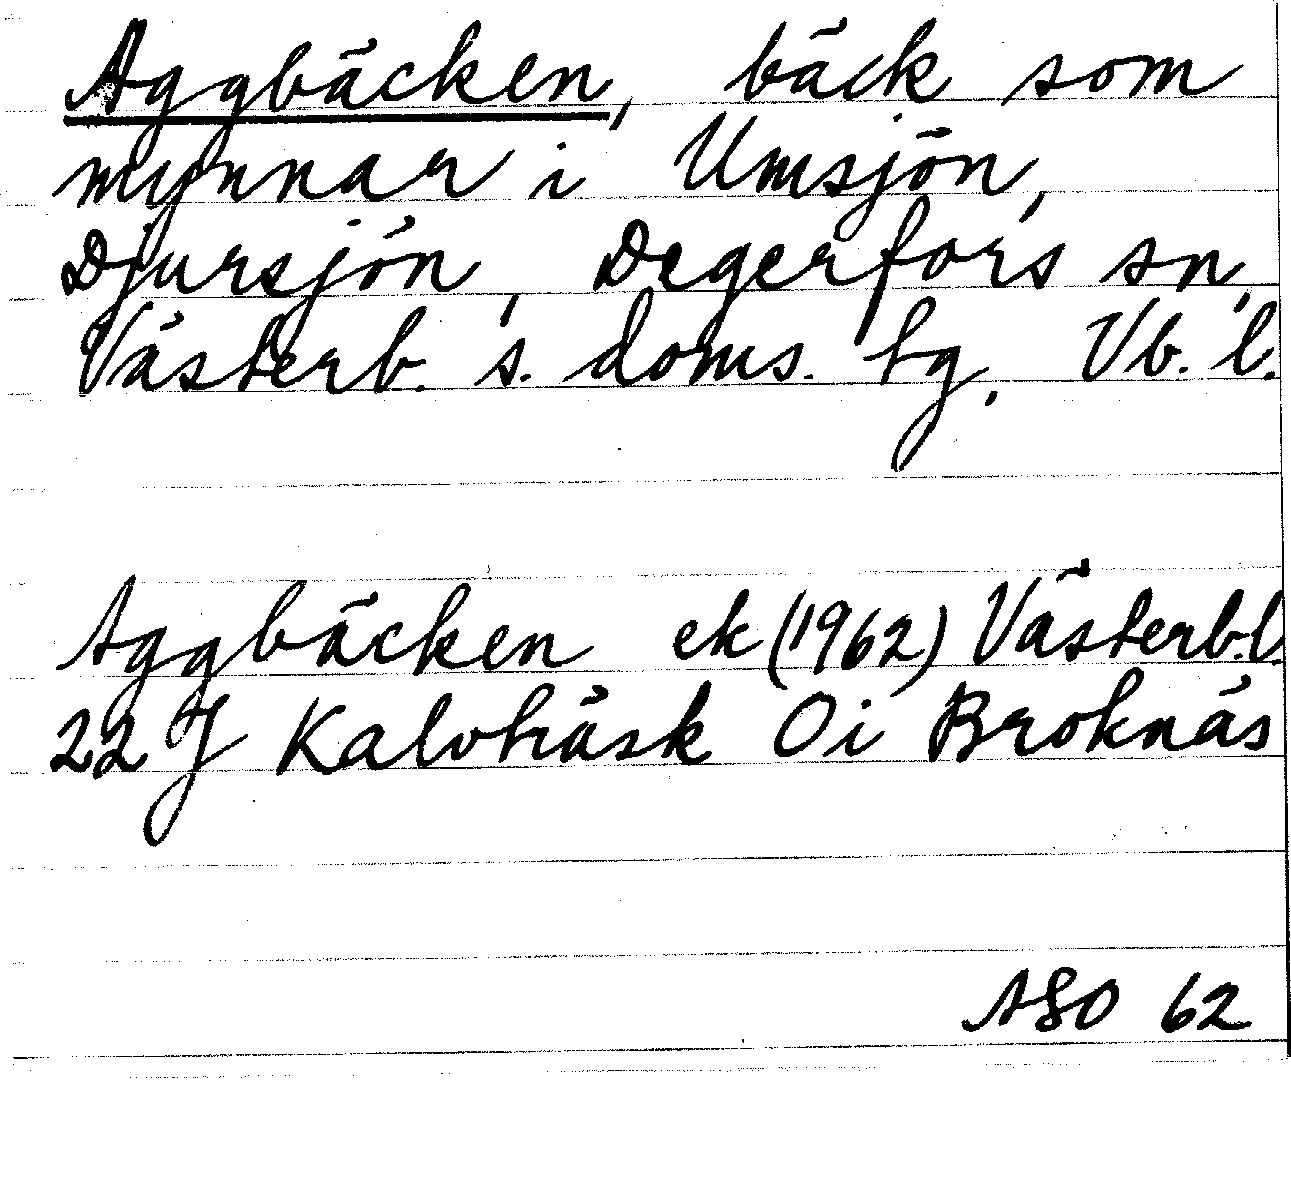 Aggbäcken, bäck som
mynnar i Umsjön,
Djursjön, Degerfors sn,
Västerb. s. doms. tg. Vb. l.
Aggbäcken ek (1962) Västerb.l.
22 J Kalvträsk Oi Broknäs
ASO 62